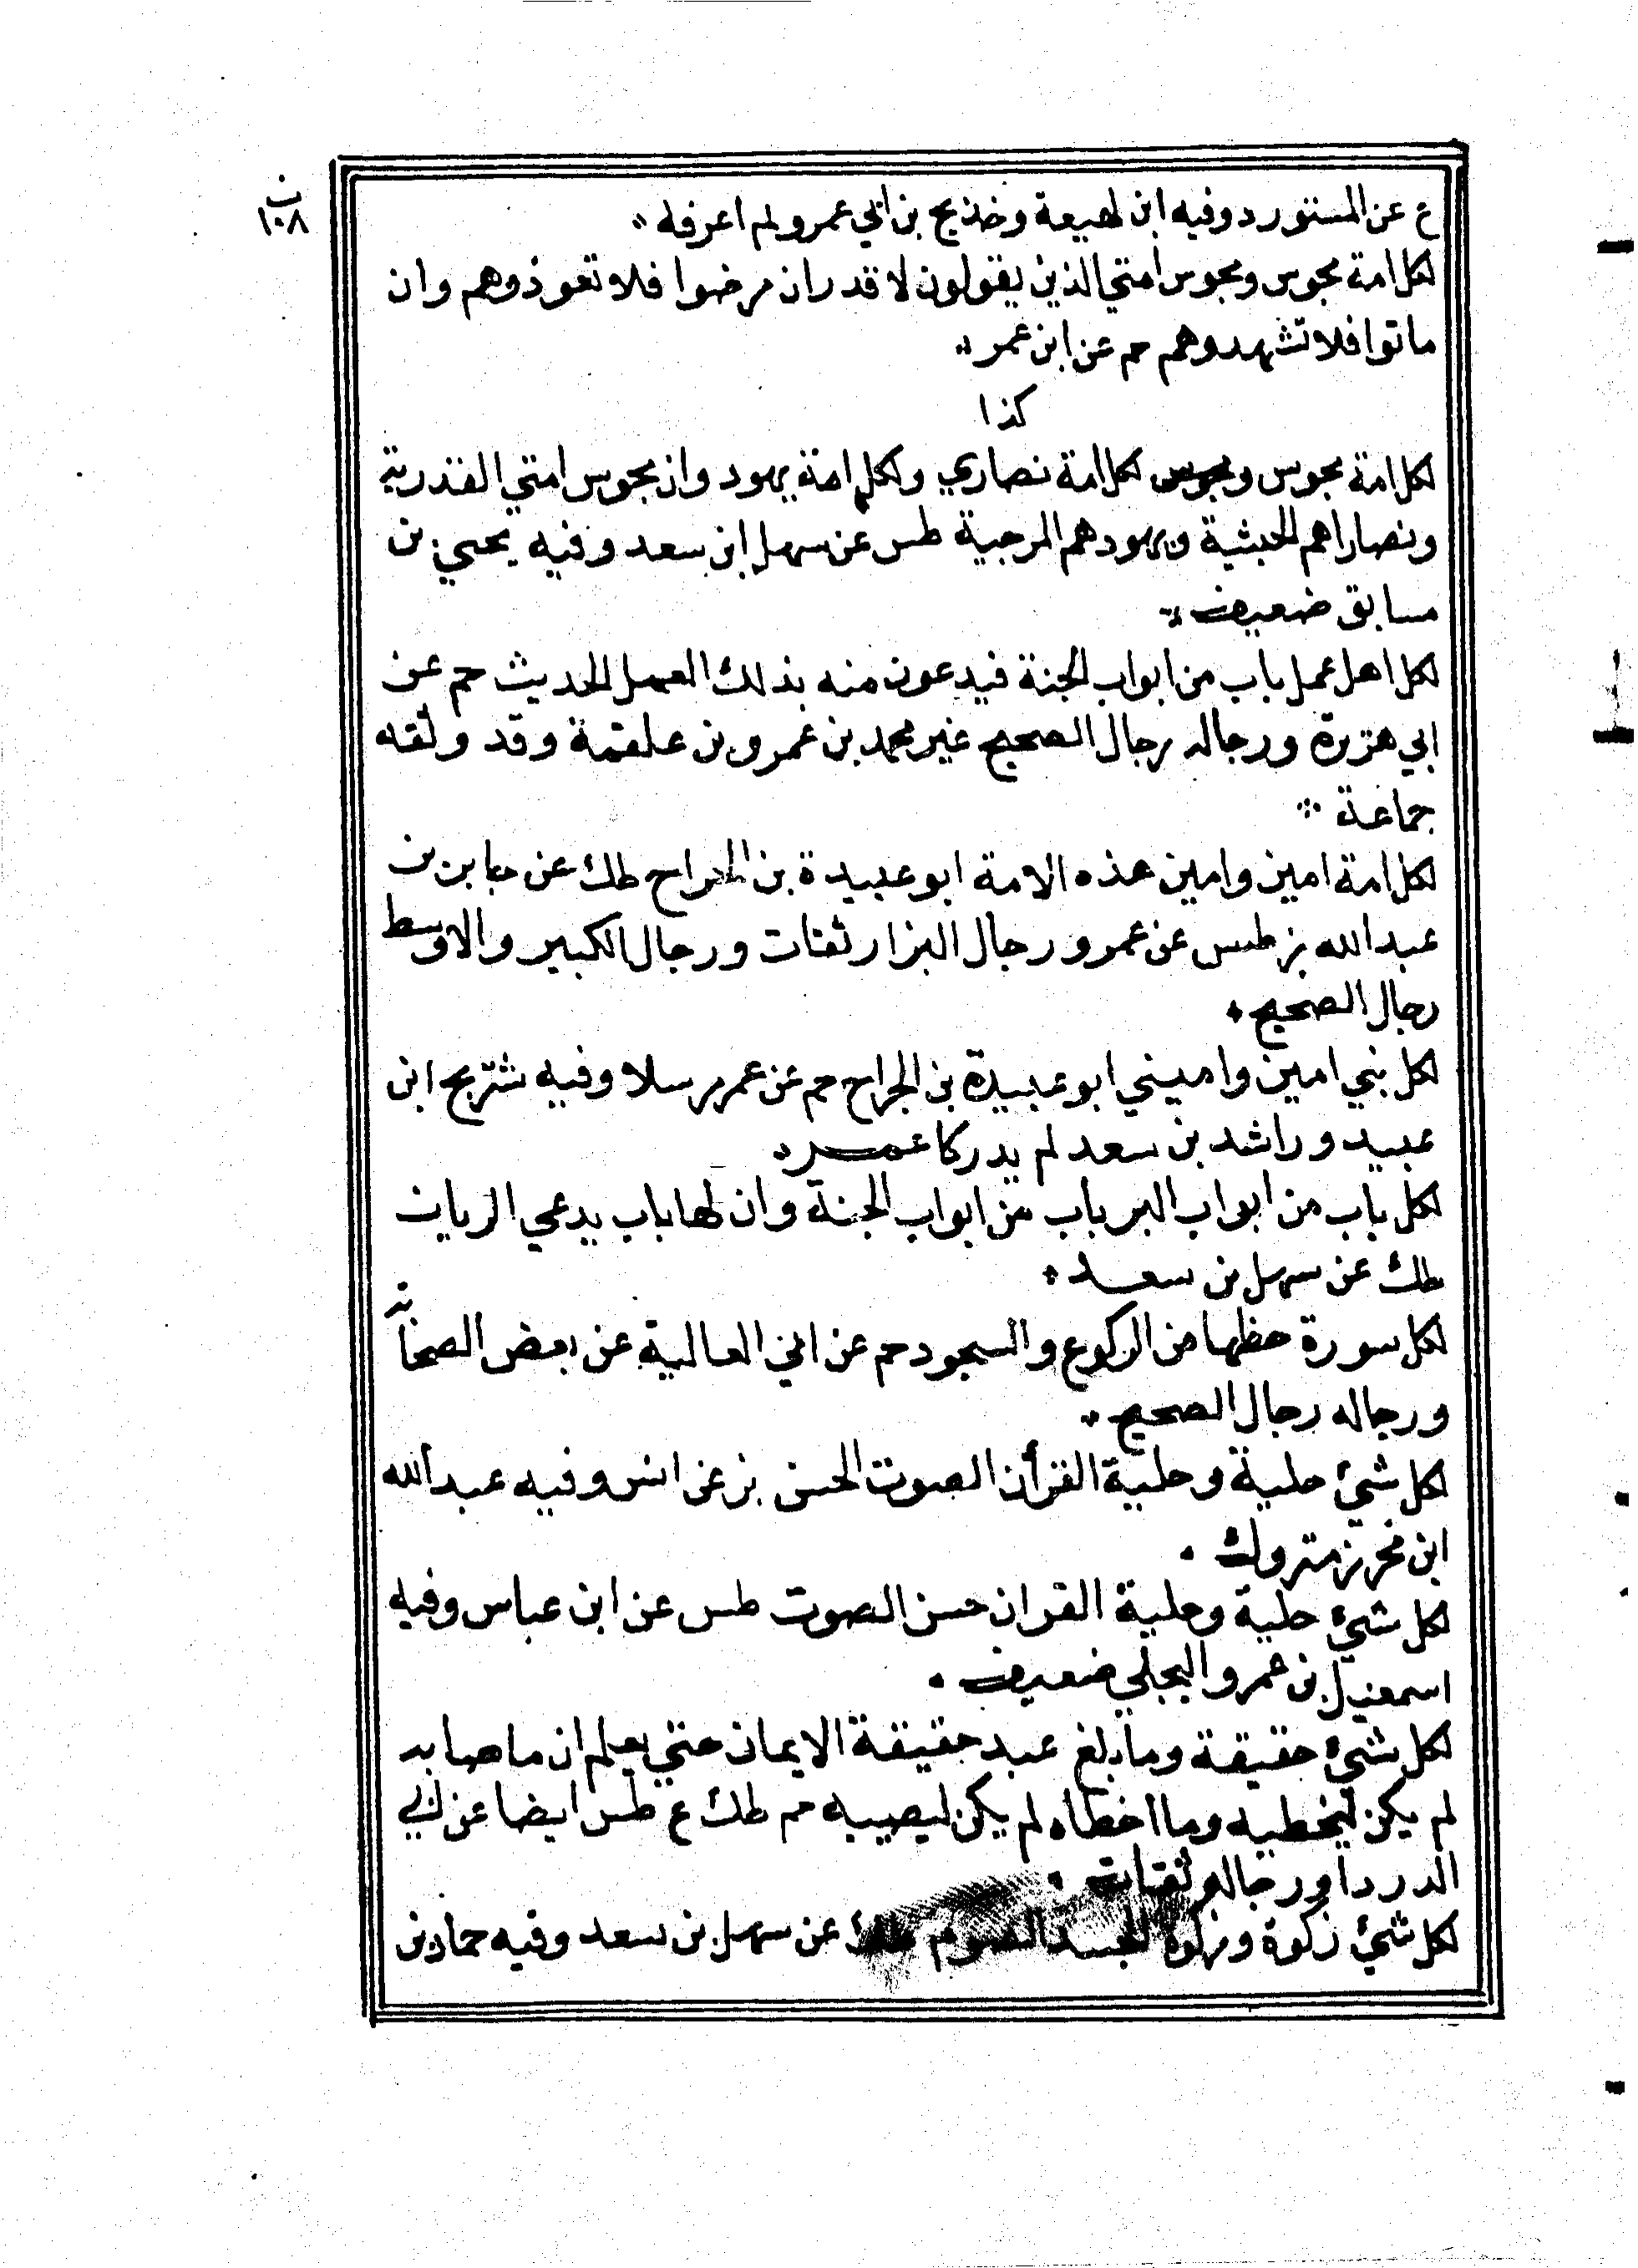 ب
١٠٨
ع عن المستورد وفيه ابن لهيعة وخديج بن ابي عمرو لم اعرفه
لكل امة مجوس ومجوس امتي الذين يقولون لا قدر ان مرضوا فلا تعوذوهم وان
ماتوا فلا تشهدوهم حم عن ابن عمر
كذا
لكل امة مجوس ومجوس لكل امة نصاري ولكل امة يهود وان مجوس امتي القدرية
ونصاراهم الحبثية ويهودهم المرجية طس عن سهل ابن سعد وفيه يحيي بن
سابق ضعيف
لكل اهل عمل باب من ابواب الجنة فيدعون منه بذلك العمل الحديث حم عن
ابي هريرة ورجاله رجال الصحيح غير محمد بن عمرو بن علقمة وقد وثقه
جماعة
لكل امة امين وامين هذه الامة ابو عبيدة بن الجراح طك عن جابر بن
عبدالله بز طس عن عمر ورجال البزار ثقات ورجال الكبير والاوسط
رجال الصحيح
لكل نبي امين واميني ابو عبيدة بن الجراح حم عن عمر مرسلا وفيه شريح ابن
عبيد وراشد بن سعد لم يدركا عمر
لكل باب من ابواب البر باب من ابواب الجنة وان لها باب يدعي الريان
طك عن سهل بن سعد
لكل سورة حظها من الركوع والسجود حم عن ابي العالية عن بعض الصحابة
ورجاله رجال الصحيح
لكل شئ حلية وحلية القرأن الصوت الحسن بز عن انس وفيه عبدالله
ابن محرز متروك
لكل شئ حلية وحلية القران حسن الصوت طس عن ابن عباس وفيه
اسمعيل بن عمرو البجلي ضعيف
لكل شئ حقيقة وما بلغ عبد حقيقة الايمان حتي يعلم ان ما صابه
لم يكن ليخطيه وما اخطاه لم يكن ليصيبه حم طك ع طس ايضا عن ابي
الدردا ورجاله ثقات
لكل شئ زكوة وزكوة الجسد الصوم طك عن سهل بن سعد وفيه حماد بن